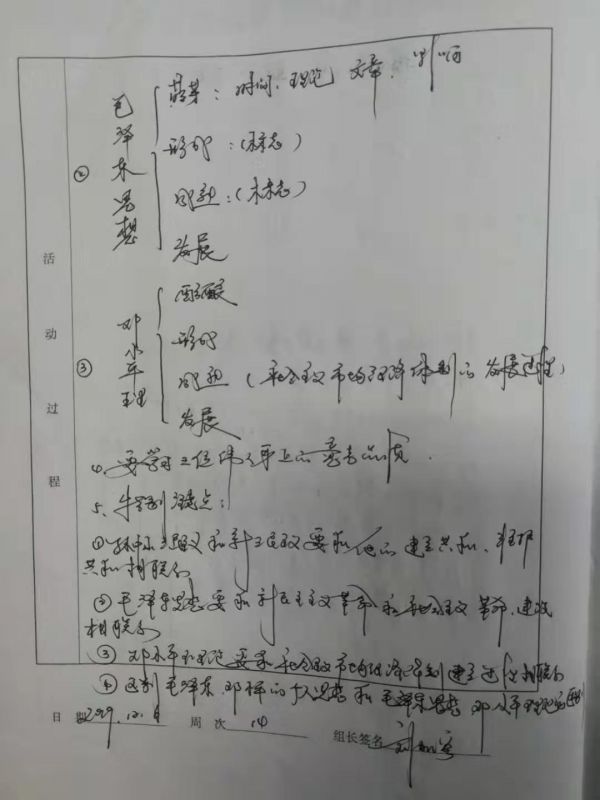 活动过程
② 毛泽东思想
萌芽：时间、理论 文章、
形成：（标志）
成熟：（标志）
发展
③ 邓小平理
酝酿
形成
成熟（社会主义市场经济体制的发展过程）
发展
4、要学习三位伟人身上的 品质．
5、特别注意点：
① 三民主义和新三民主义要和他的建立共和、维护
共和相联系
② 毛泽东思想要和新民主主义革命和社会主义革命、建设
相联系
③ 邓小平理论要和社会主义市场经济体制建立 相联系
④ 区别毛泽东、邓 的个人思想和毛泽东思想、邓小平理论的区别
日期 2019.12.6 周次 14 组长签名